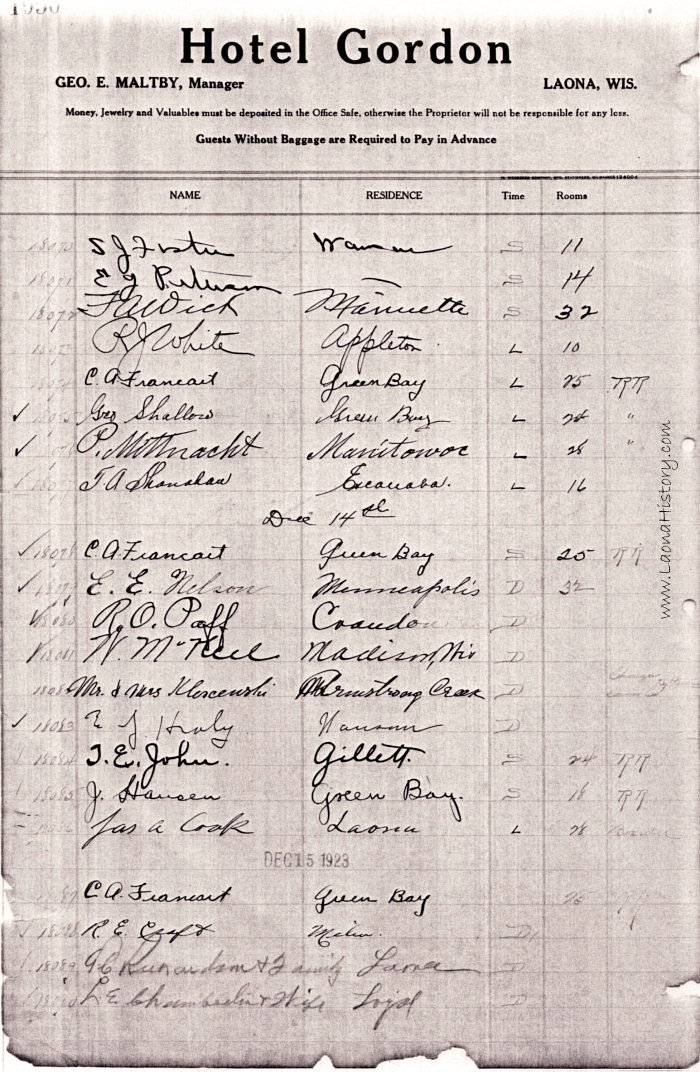 Hotel Gordon
GEO. E. MALTBY, Manager LAONA, WIS.
Money, Jewelry and Valuables must be deposited in the Office Safe, otherwise the Proprietor will not be responsible for any loss.
Guests Without Baggage are Required to Pay in Advance
NAME RESIDENCE Time Rooms
S J Foster Wausau S 11
E J Peterson — S 14
18072 F A Wick Marinette S 32
R J White Appleton L 10
C. A. Francart Green Bay L 25 RR
✓ Geo Shallow Green Bay L 28 "
✓ P. Mittnacht Manitowoc L 28 "
T. A Shanahan Escanaba. L 16
Dec 14 st
✓ 18078 C A Francart Green Bay S 25 RR
✓ 18079 E. E. Nelson Minneapolis D 32
✓ 18080 R. O. Paff Crandon D
✓ 18081 W. McNeil Madison, Wis D
18082 Mr. & Mrs Armstrong Creek D
✓ 18083 E J Wausau D
18084 T. E. John. Gillett. S 24 RR
18085 J. Hansen Green Bay. S 18 RR
Jas a Cook Laona L 28
DEC 15 1923
C. A. Francart Green Bay 25
R. E. Craft Milw. D
18089 Richardson & Family Laona D
L E Chamberlin & Wife D
www.LaonaHistory.com